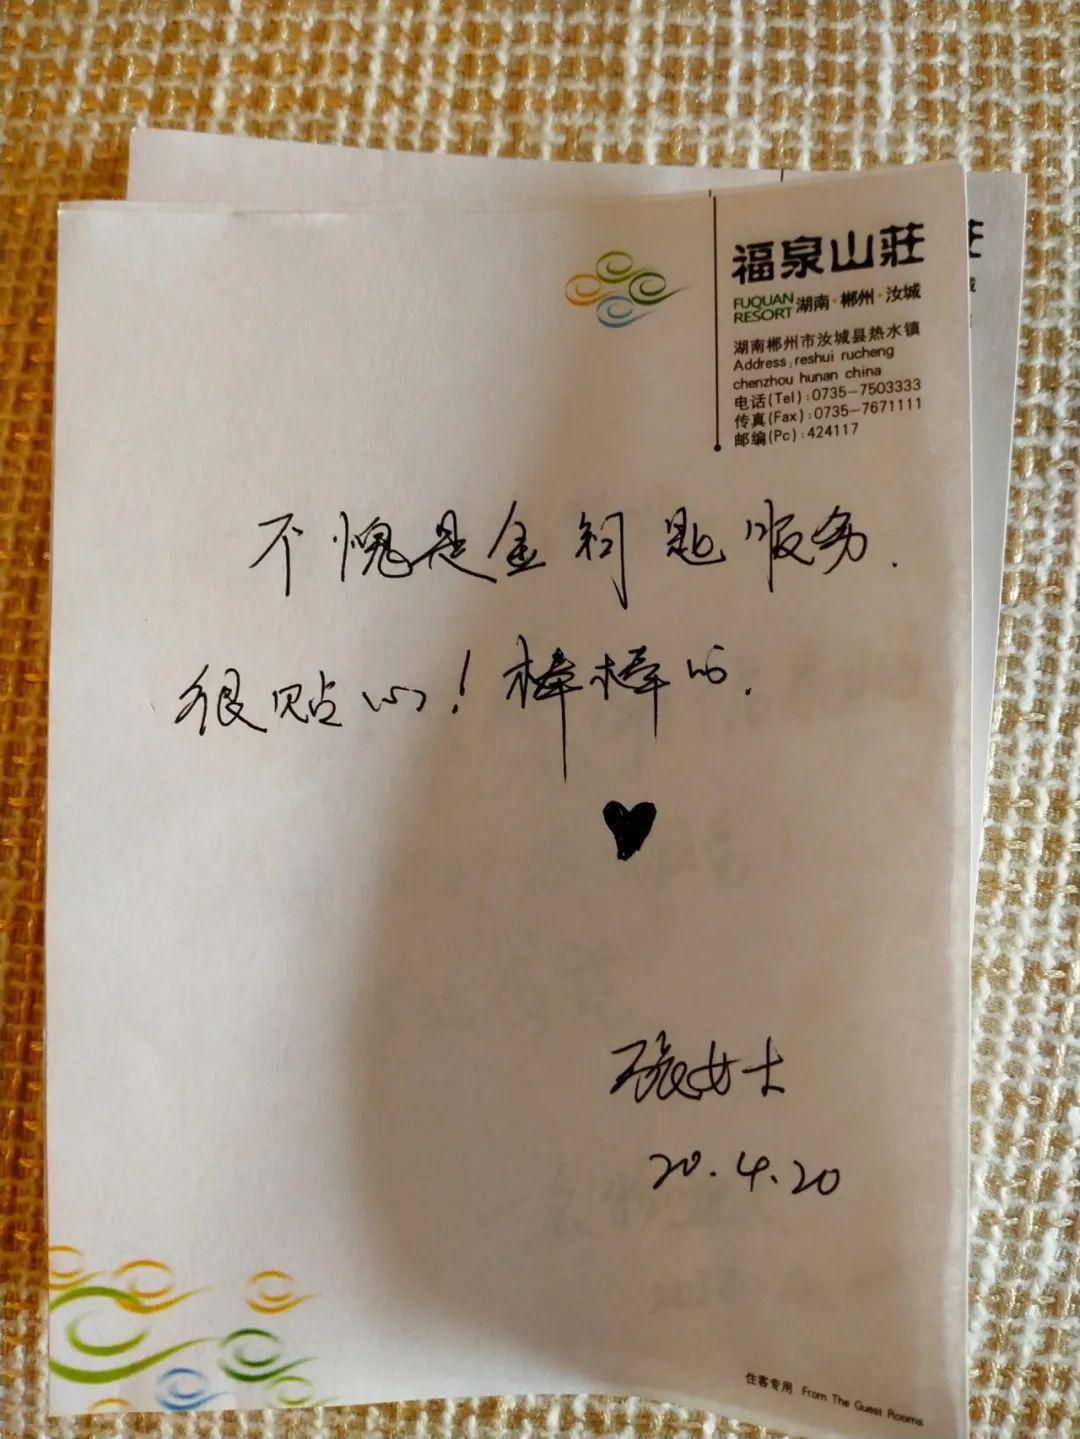 福泉山莊
FUQUAN RESORT 湖南·郴州·汝城
湖南郴州市汝城县热水镇
Address:reshui rucheng
chenzhou hunan china
电话(Tel):0735-7503333
传真(Fax):0735-7671111
邮编(Pc):424117
不愧是金钥匙服务.
很贴心!棒棒的.
张女士
20.4.20
住客专用 From The Guest Rooms